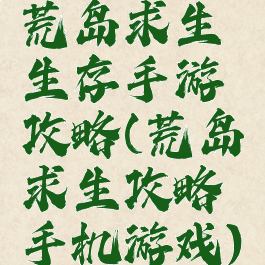 荒岛求生
生存手游
攻略(荒岛
求生攻略
手机游戏)